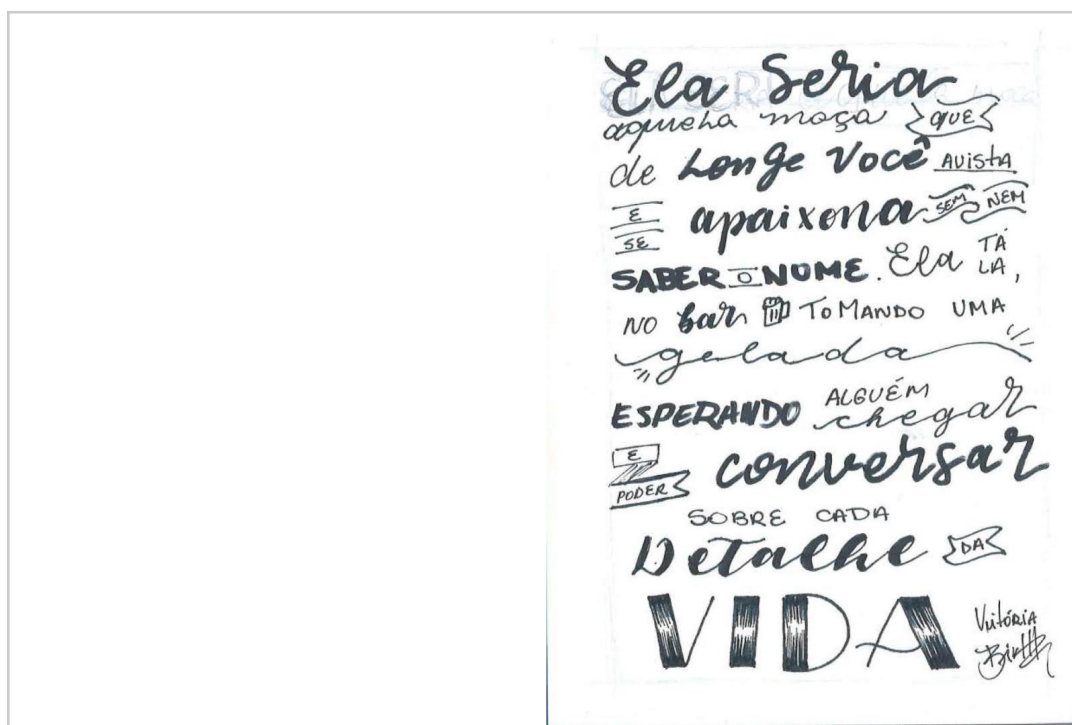 Ela Seria
aquela moça QUE
de Longe Você AVISTA
E SE apaixona SEM NEM
SABER O NOME. Ela TÁ LÁ,
NO bar TOMANDO UMA
gelada
ESPERANDO ALGUÉM chegar
E PODER conversar
SOBRE CADA
Detalhe DA
VIDA
Vitória